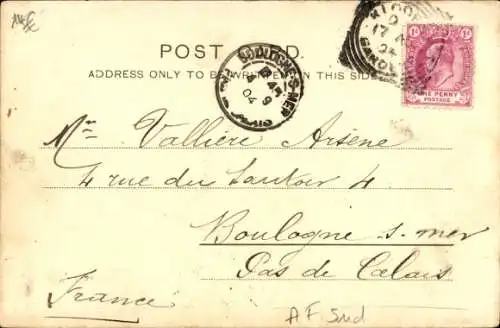 POST CARD
ADDRESS ONLY TO BE WRITTEN ON THIS SIDE
BOULOGNE-S-MER
9
04
17
04
1d 1d
ONE PENNY
POSTAGE
Mr Vallière Arsène
4 rue du Sautoir 4
Boulogne-s-mer
Pas de Calais
France
AF Sud